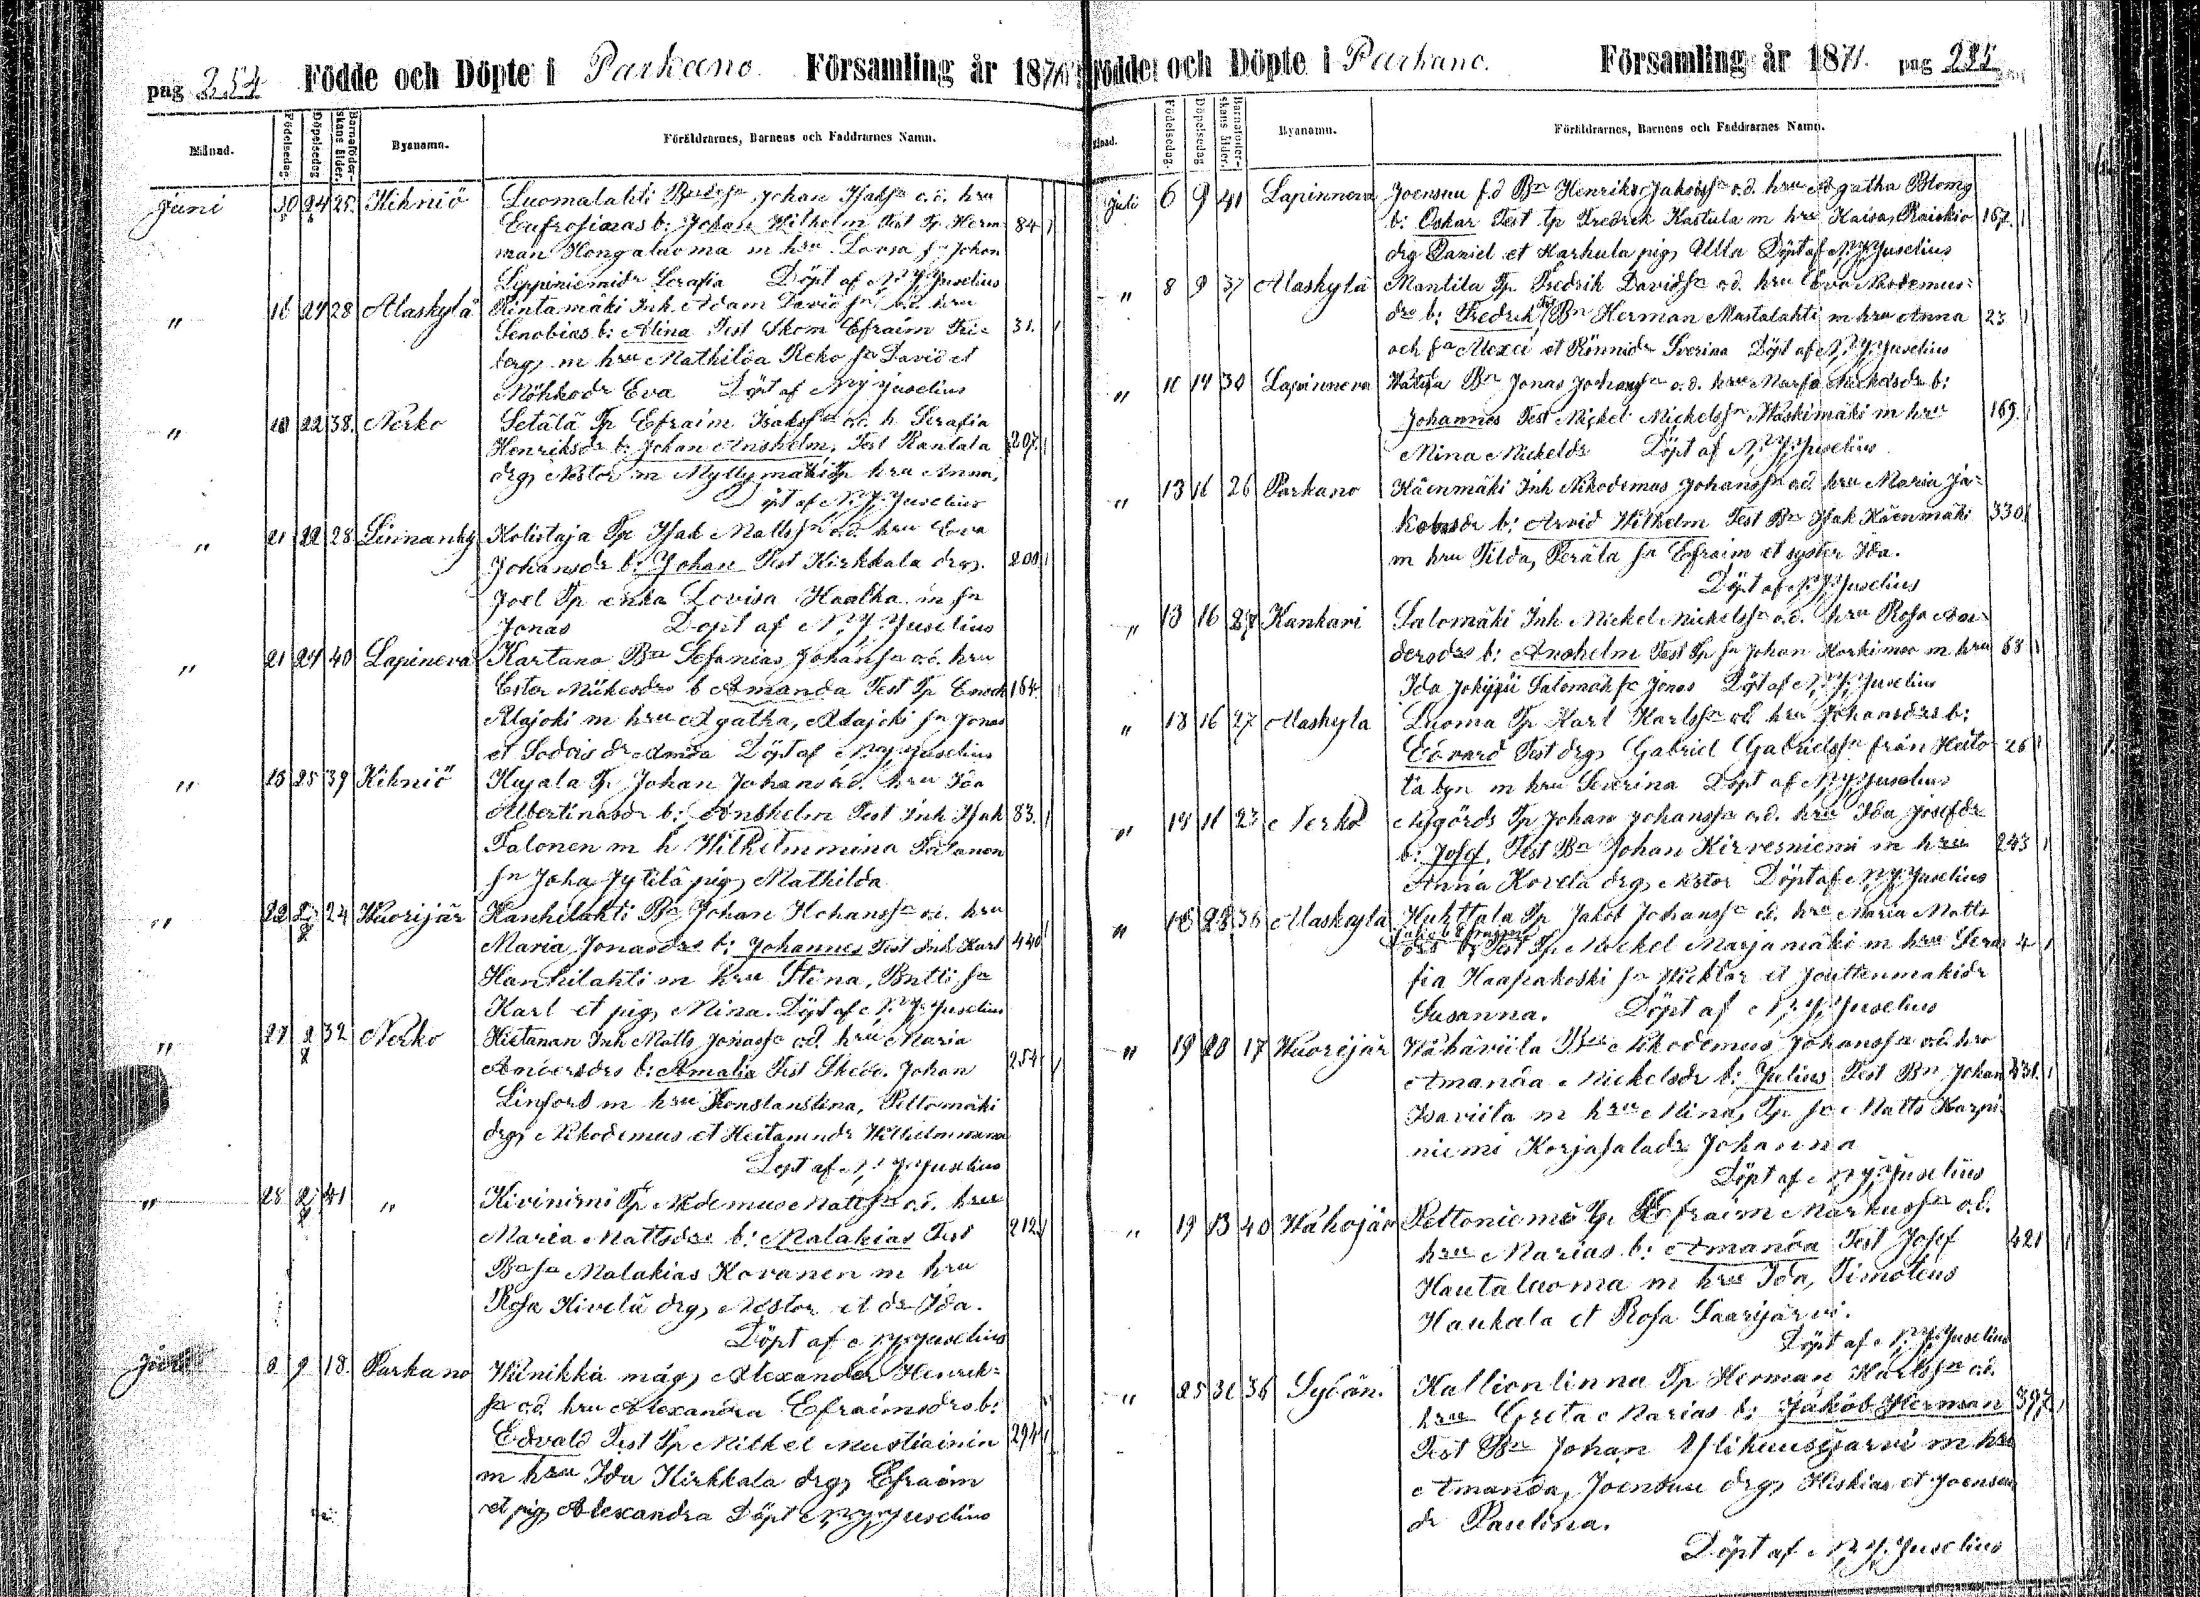 pag 254 Födde och Döpte i Parkano. Församling år 1871
Månad. Födelsedag. Döpelsedag Barnaföderskans ålder. Byanamn. Föräldrarnes, Barnens och Faddrarnes Namn.
Juni 10 24 25. Kihniö Luomalahti Johan Isaksn o.d. hru
Eufrosinas b: Johan Wilhelm Test Tp Herm 84
man Hongaluoma m hru Lovsa sn Johan
Leppiniemidr Serafia Döpt af N. J. Juselius
" 16 24 28 Alaskylä Rintamäki Inh Adam Davidsn o.d. hru
Senobias b: Alina Test Skom Efraim Fri- 31.
berg, m hru Mathilda Reko sn David et
Möhkodr Eva Döpt af N. J. Juselius
" 10 22 38. Nerko Setälä Tp Efraim Isakssn o.d. h Serafia
Henriksdr b: Johan Anshelm, Test Rantala 207.
drg, Nestor m Myllymäki Tp hru Anna,
öpt af N. J. Juselius
" 21 22 28 Linnanky Kolistaja Tp Isak Mattssn o.d. hru Eva
Johansdr b: Johan Test Kirkkala drg. 200
Joel Tp enka Lovisa Haalka m sn
Jonas Döpt af N. J. Juselius
" 21 24 40 Lapineva Kartano Bn Sefanias Johansn o.d. hru
Ester b Amanda Test Tp Enock 164
Alajoki m hru Agatha, Alajoki sn Jonas
et dr Amda Döpt af N. J. Juselius
" 18 25 39 Kihniö Kujala Tp Johan Johans o.d. hru Ida
Albertinasdr b: Anshelm Test Inh Isak 83.
Talonen m h Wilhelmmina Talonen
sn Joha Jytilä pig, Mathilda
" 22 2 24 Wuorijär Hanhilahti Bn Johan Johanssn o.d. hru
Maria Jonasdrs b: Johannes Test Inh Karl 440
Hanhilahti m hru Stina, sn
Karl et pig, Mina. Döpt af N. J. Juselius
" 27 2 32 Nerko Hietanan Inh Matts Jonassn o.d. hru Maria
Andersdrs b: Amalia Test Johan 254
Linfors m hru Konstanstina, Peltomäki
drg, Nikodemus et Heitamndr Wilhelmmina
Döpt af N. J. Juselius
" 28 2 41 " Kivinirni Tp Nikdemus Mattssn o.d. hru
Maria Mattsdrs b: Malakias Test 212.
Bn sn Malakias Koranen m hru
Rosa Kivelä drg, Nestor et dr Ida.
Döpt af N. J. Juselius
Juli 8 9 18. Parkano Winikka måg, Alexander Henrik-
sn o.d. hru Alexandra Efraimsdrs b:
Edvald Test Tp Mikkel Mustiainin 294
m hru Ida Kirkkala drg, Efraim
et pig, Alexandra Döpt N. J. Juselius
Födde och Döpte i Parkano. Församling år 1871. pag 255
Månad. Födelsedag. Döpelsedag Barnaföderskans ålder. Byanamn. Föräldrarnes, Barnens och Faddrarnes Namn.
Juli 6 9 41 Lapinneva Joensuu f.d Bn Henriks Jakobssn o.d. hru Agatha Blomg
b: Oskar Test Tp Fredrik Kastula m hru Kaisa, Raiskio 167.
drg Daniel et Karhula pig, Ulla Döpt af N. J. Juselius
" 8 9 37 Alaskylä Mantila Tp Fredrik Davidssn o.d. hru Eva Nikodemus-
drs b: Fredrik Tst Bn Herman Mustalahti m hru Anna 23
och sn Alexei et Rönnidr Sverina Döpt af N. J. Juselius
" 10 14 30 Lapinneva Bn Jonas Johanssn o.d. hru Marja Nickelsdr b:
Johannes Test Mickel Mickelssn Waskimäki m hru 169.
Mina Nickelsdr Döpt af N. J. Juselius
" 13 16 26 Parkano Käenmäki Inh Nikodemus Johanssn o.d. hru Maria Ja-
kobsdr b: Arvid Wilhelm Test Bn Isak Käenmäki 330
m hru Tilda, Peräla sn Efraim et syster Ida.
Döpt af N. J. Juselius
" 13 16 27 Kankari Salomäki Inh Mickel Mickelssn o.d. hru Rosa An-
dersdrs b: Anshelm Test Tp sn Johan Korkimoo m hru 68
Ida Jokipii Salomäk sn Jonas Döpt af N. J. Juselius
" 13 16 27 Alaskyla Luoma Tp Karl Karlssn o.d. hru Johansdrs b:
Edvard Test drg, Gabriel Gabrielssn från Heito 26
ta byn m hru Severina Döpt af N. J. Juselius
" 14 16 23 Nerko Nygårds Tp Johan Johanssn o.d. hru Ida Josefdr
b: Josef. Test Bn Johan Kirvesniemi m hru 243
Anna Korela drg, Nestor Döpt af N. J. Juselius
" 18 28 36 Alaskyla Huhttala Tp Jakob Johanssn o.d. hru Maria Matts
drs b: Test Tp Mickel Marjamäki m hru Sera 4
fia Haapakoski sn Wicktor et Jouttenmäkidr
Susanna. Döpt af N. J. Juselius
" 19 20 17 Wuorijär Wähäviila Bn Nikodemus Johanssn o.d. hru
Amanda Nickelsdr b: Julius Test Bn Johan 431.
Isaviita m hru Mina, Tp sn Matts Karpi-
niemi Korjasaladr Johanna
Döpt af N. J. Juselius
" 19 13 40 Wahojär Peltoniemi Tp Efraim Markussn o.d.
hru Marias b: Amanda Test Josef 421
Hautaluoma m hru Ida, Timoteus
Haukala et Rosa Saarijärvi.
Döpt af N. J. Juselius
" 25 31 36 Sydän. Kallionlinna Tp Herman Karlssn o.d.
hru Greta Marias b: Jakob Herman 397
Test Bn Johan Ylikuusijärvi m hru
Amanda, Joensuu drg, Hiskias et Joensuu
dr Paulina.
Döpt af N. J. Juselius